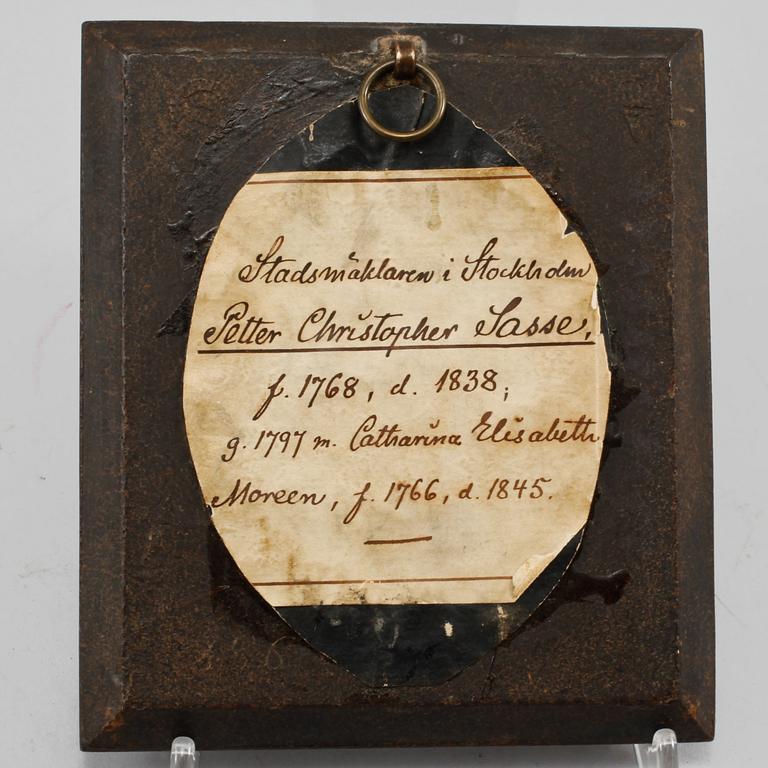 Stadsmäklaren i Stockholm
Petter Christopher Sasse,
f. 1768, d. 1838;
g. 1797 m. Catharina Elisabeth
Moreen, f. 1766, d. 1845.